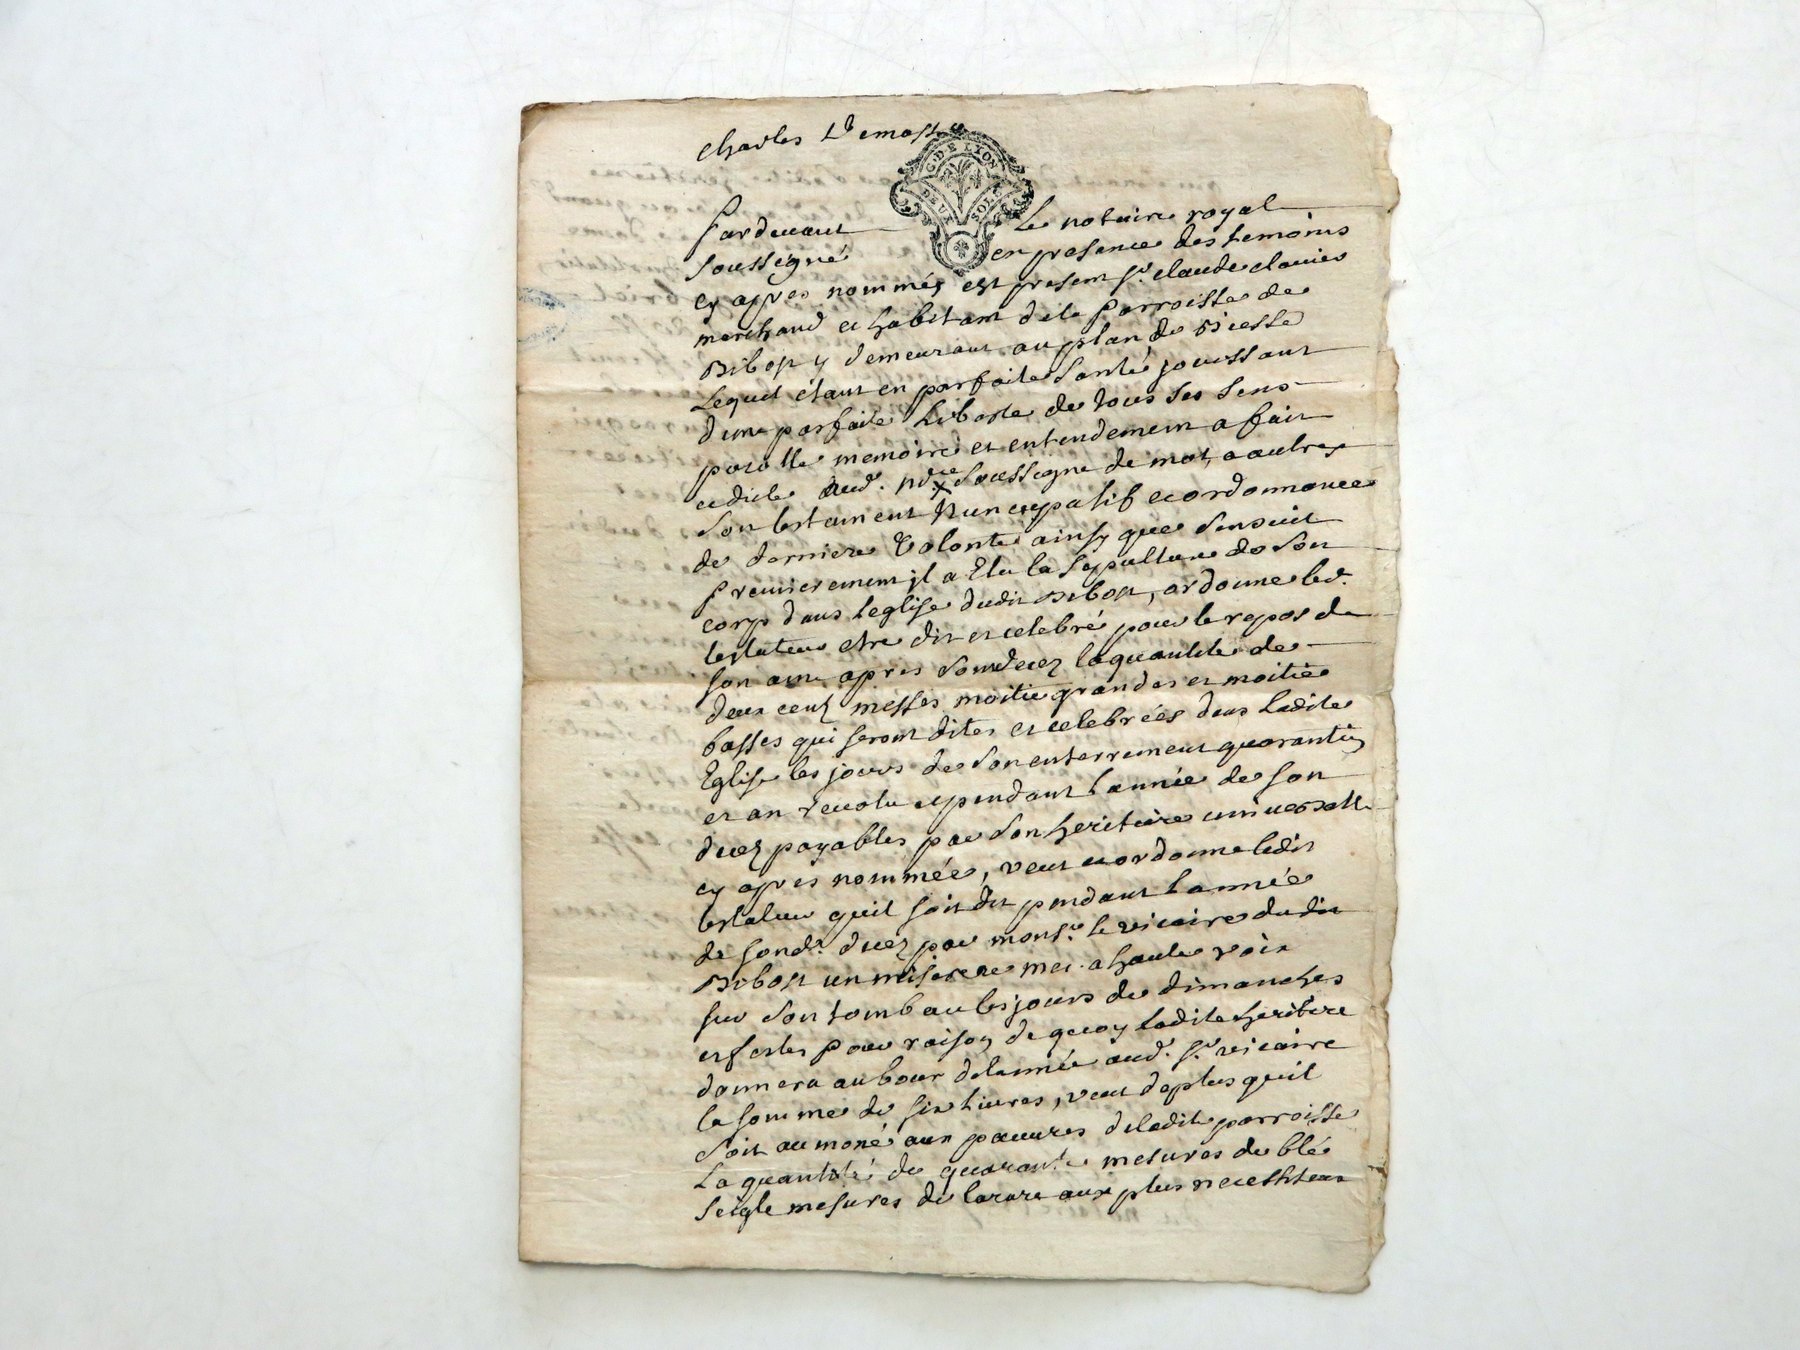 charles
G. DE LYON
DEUX SOLS
pardevant Le notaire royal
soussigné en presence des temoins
cy apres nommés est present sr. claude clavier
marchand et habitant de la parroisse de
Bibost y demeurant au plan de
Lequel étant en parfaite santé jouissant
dune parfaite Liberte de tous ses sens
parolle memoire et entendement a fait
et dicte aud. nore soussigne de mot a autre
son testament Nuncupatif et ordonnance
de derniere Volonté ainsy que sensuit
premierement il a Elu la sepulture de son
corp dans leglise dudit Bibost, ordonne led.
testateur etre dit et celebré pour le repos de
son ame apres son decez la quantité de
deux cent messes moitié grandes et moitié
basses qui seront dites et celebrées dans ladite
Eglise les jours de son enterrement quarantin
et an revolu et pendant lannée de son
decez payables par son heritiere universelle
cy apres nommée, veut et ordonne ledit
testateur quil soit dit pendant lannée
de sond. decez par monsr. le vicaire dudit
Bibost un miserere mei a haute voix
sur son tombeau les jours de dimanches
et festes pour raison de quoy ladite heritiere
donnera au bout de lannée aud. sr. vicaire
la somme de six livres, veut de plus quil
soit aumoné aux pauvres de ladite parroisse
La quantité de quarante mesures de blé
seigle mesures de aux plus necessiteux